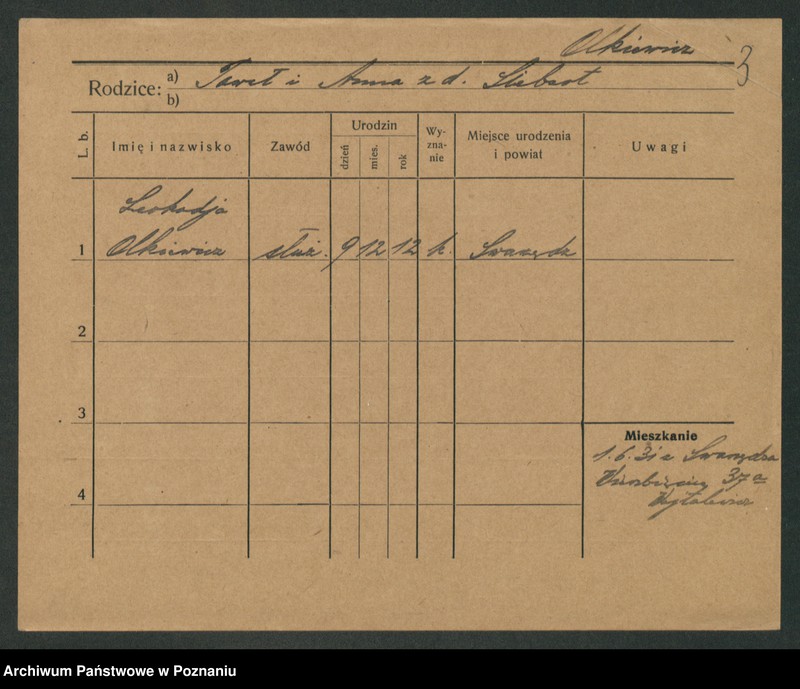 Olkiewicz
3
Rodzice: a) Paweł i Anna z d.
b)
L. b.
Imię i nazwisko
Zawód
Urodzin
dzień
mies.
rok
Wy-
zna-
nie
Miejsce urodzenia
i powiat
Uwagi
Leokadja
1 Olkiewicz służ. 9 12 12 k. Swarzędz
2
3
Mieszkanie
1.6.31 z Swarzędza
37a
4
Archiwum Państwowe w Poznaniu